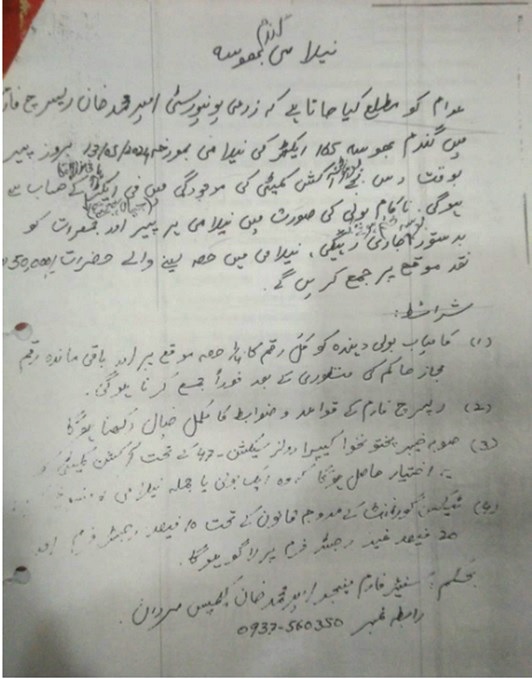 نیلامی گندم بھوسہ
عوام کو مطلع کیا جاتا ہے کہ زرعی یونیورسٹی امیر محمد خان ریسرچ فارم
میں گندم بھوسہ 165 ایکڑ کی نیلامی بمورخہ 13/05/2024 بروز پیر
بوقت دس بجے آکشن کمیٹی کی موجودگی میں فی ایکڑ کے حساب سے
ہوگی۔ ناکام بولی کی صورت میں نیلامی ہر پیر اور جمعرات کو
بدستور جاری رہیگی، نیلامی میں حصہ لینے والے حضرات 50,000/
نقد موقع پر جمع کریں گے۔
شرائط:
(1) کامیاب بولی دہندہ کو کل رقم کا 1/4 حصہ موقع پر اور باقی ماندہ رقم
مجاز حاکم کی منظوری کے بعد فوراً جمع کرنا ہوگی۔
(2) ریسرچ فارم کے قواعد و ضوابط کا مکمل خیال رکھنا ہوگا
(3) صوبہ خیبر پختونخوا کیپرا رولز سیکشن-47 کے تحت آکشن کمیٹی کو
یہ اختیار حاصل ہوگا کہ وہ ایک بولی یا جملہ نیلامی
(4) ٹیکس گورنمنٹ کے مروجہ قانون کے تحت 10 فیصد رجسٹر فرم اور
20 فیصد غیر رجسٹر فرم پر لاگو ہوگا۔
بحکم: سینئر فارم منیجر امیر محمد خان کیمپس مردان۔
رابطہ نمبر 0937-560350